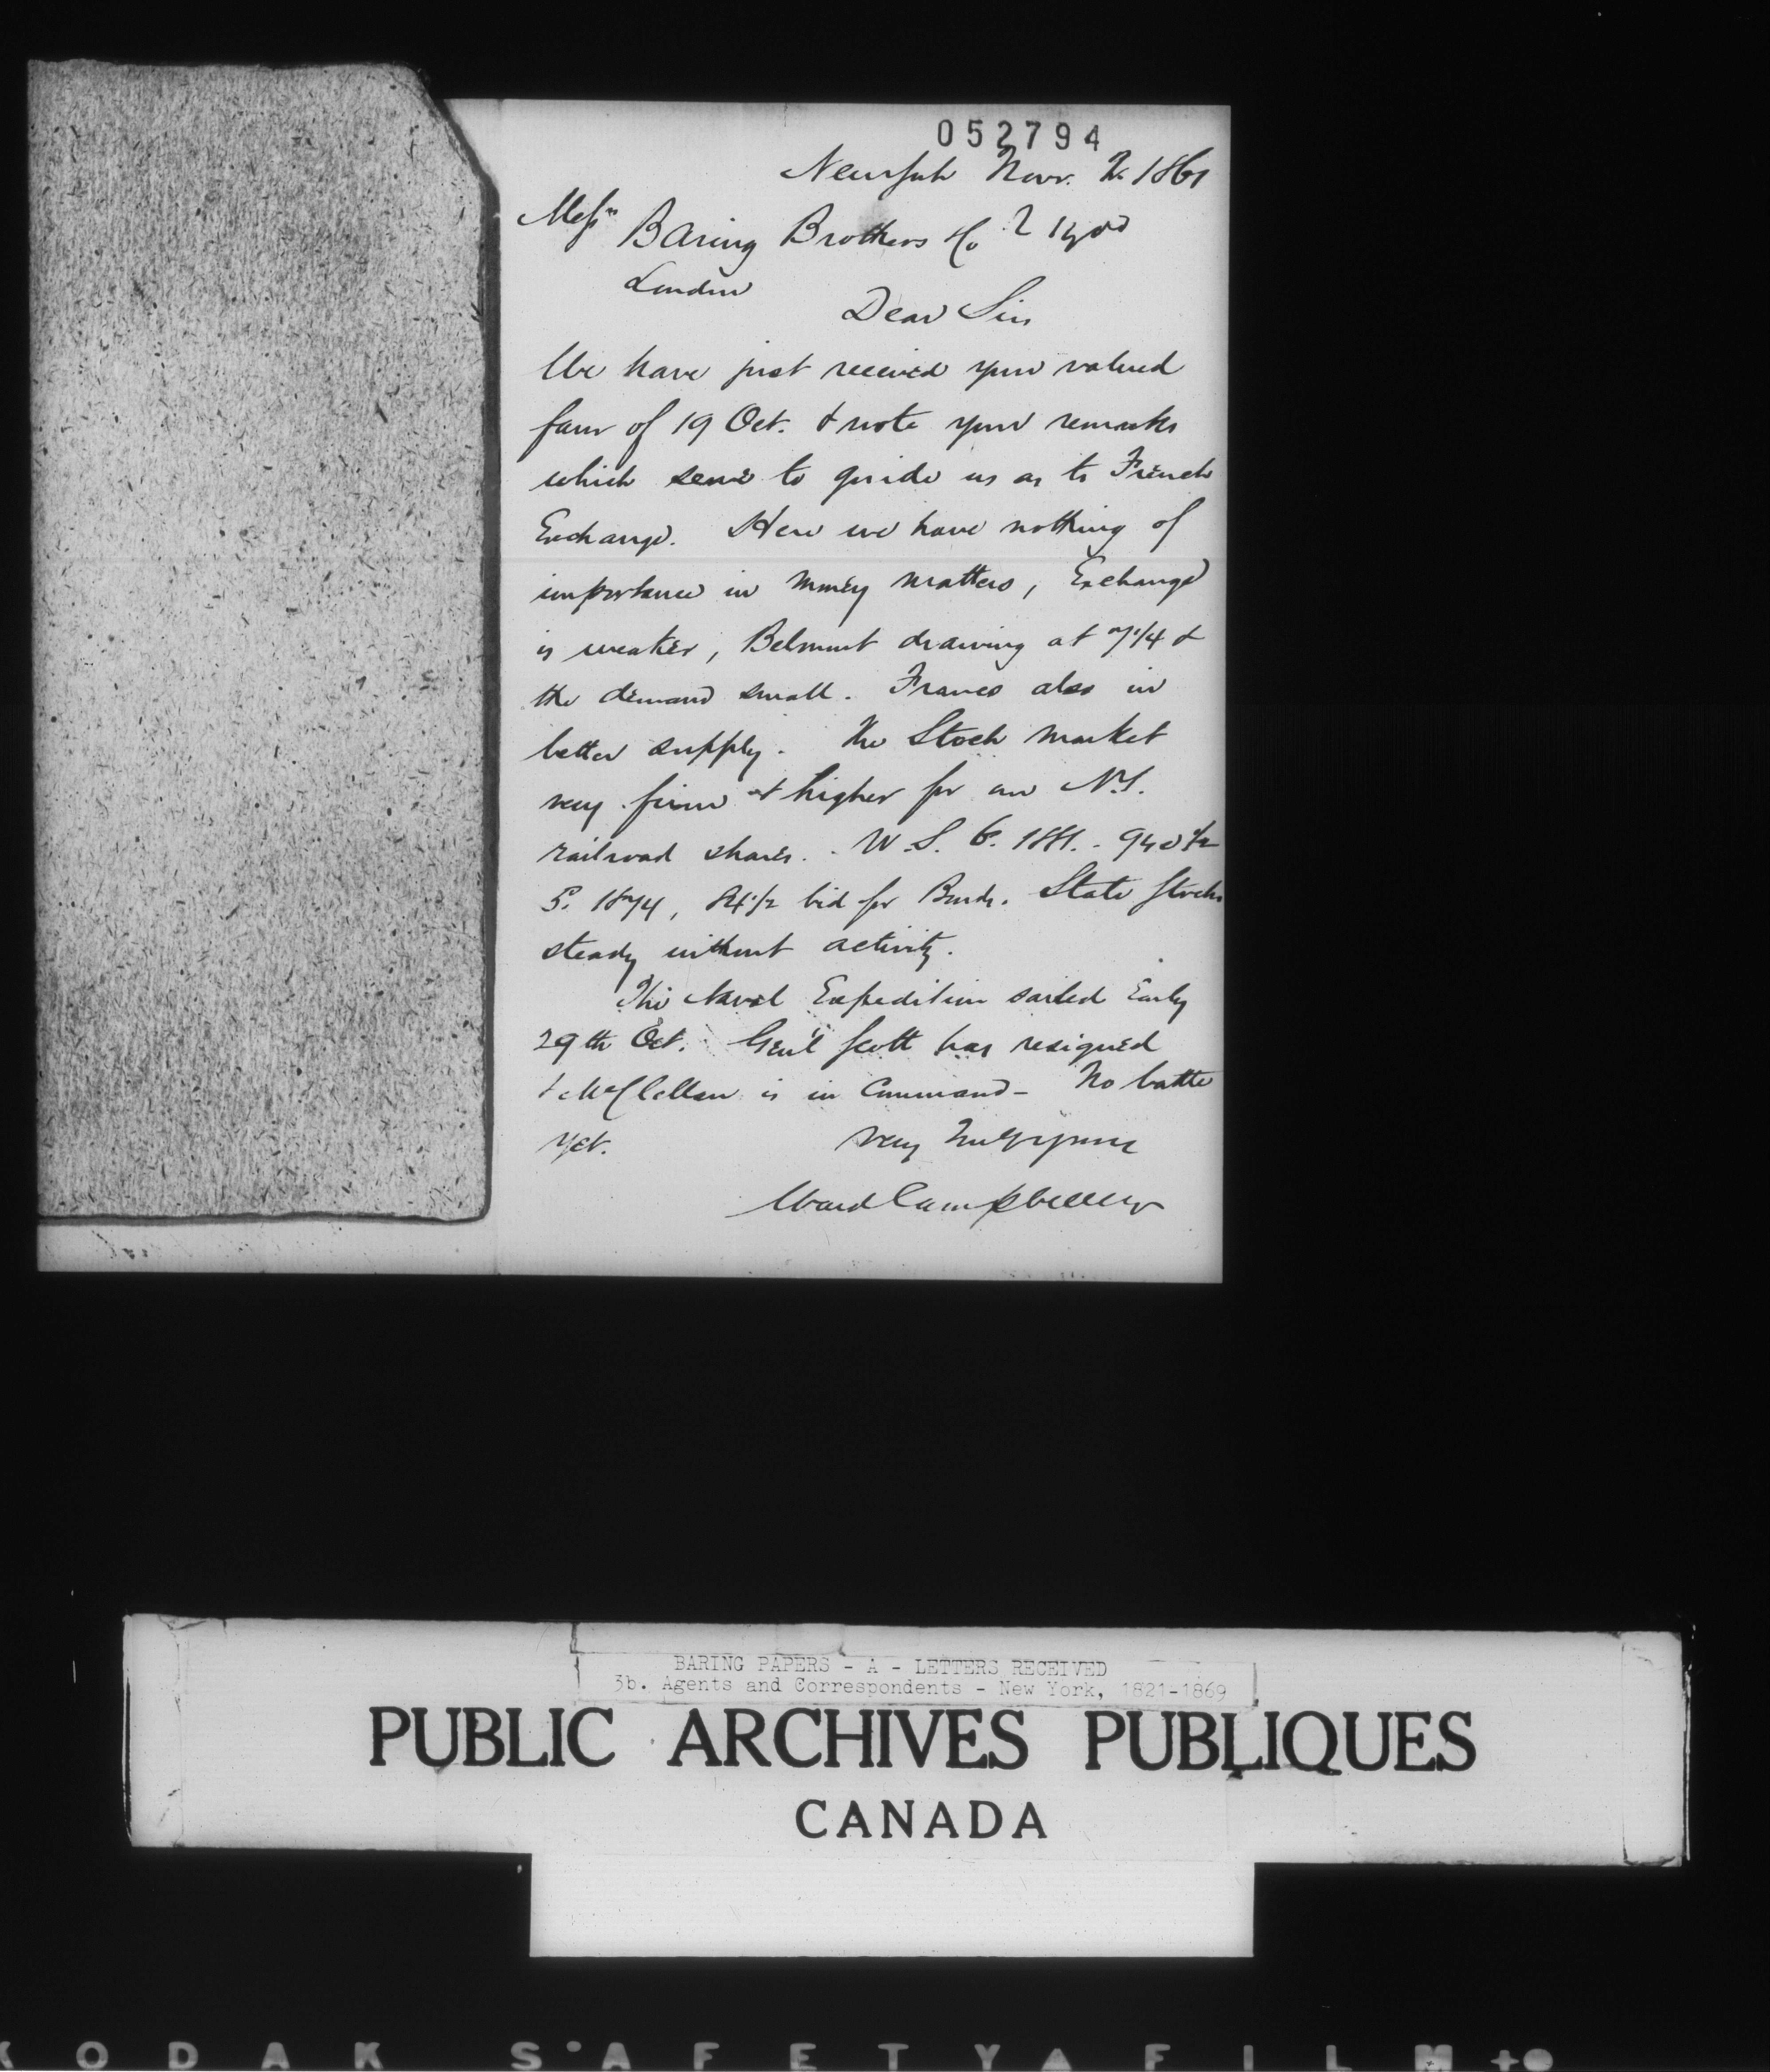 052794
New York Novr. 2 1861
Messrs Baring Brothers & Co
London
Dear Sirs
We have just received your valued
favor of 19 Oct. & note your remarks
which serve to guide us as to French
Exchange. Here we have nothing of
importance in Money matters, Exchange
is weaker, Belmont drawing at 7 1/4 &
the demand small. Francs also in
better supply. The Stock market
very firm & higher for our N.Y.
railroad shares. U.S. 6. 1881. - 94
5. 1874, 84 1/2 bid for Bonds. State Stocks
steady without activity.
The Naval Expedition sailed Early
29th Oct. Gen'l Scott has resigned
& McClellan is in Command - No battle
yet. Very Truly yours
Ward Campbell & Co
BARING PAPERS - A - LETTERS RECEIVED
3b. Agents and Correspondents - New York, 1821-1869
PUBLIC ARCHIVES PUBLIQUES
CANADA
KODAK SAFETY FILM